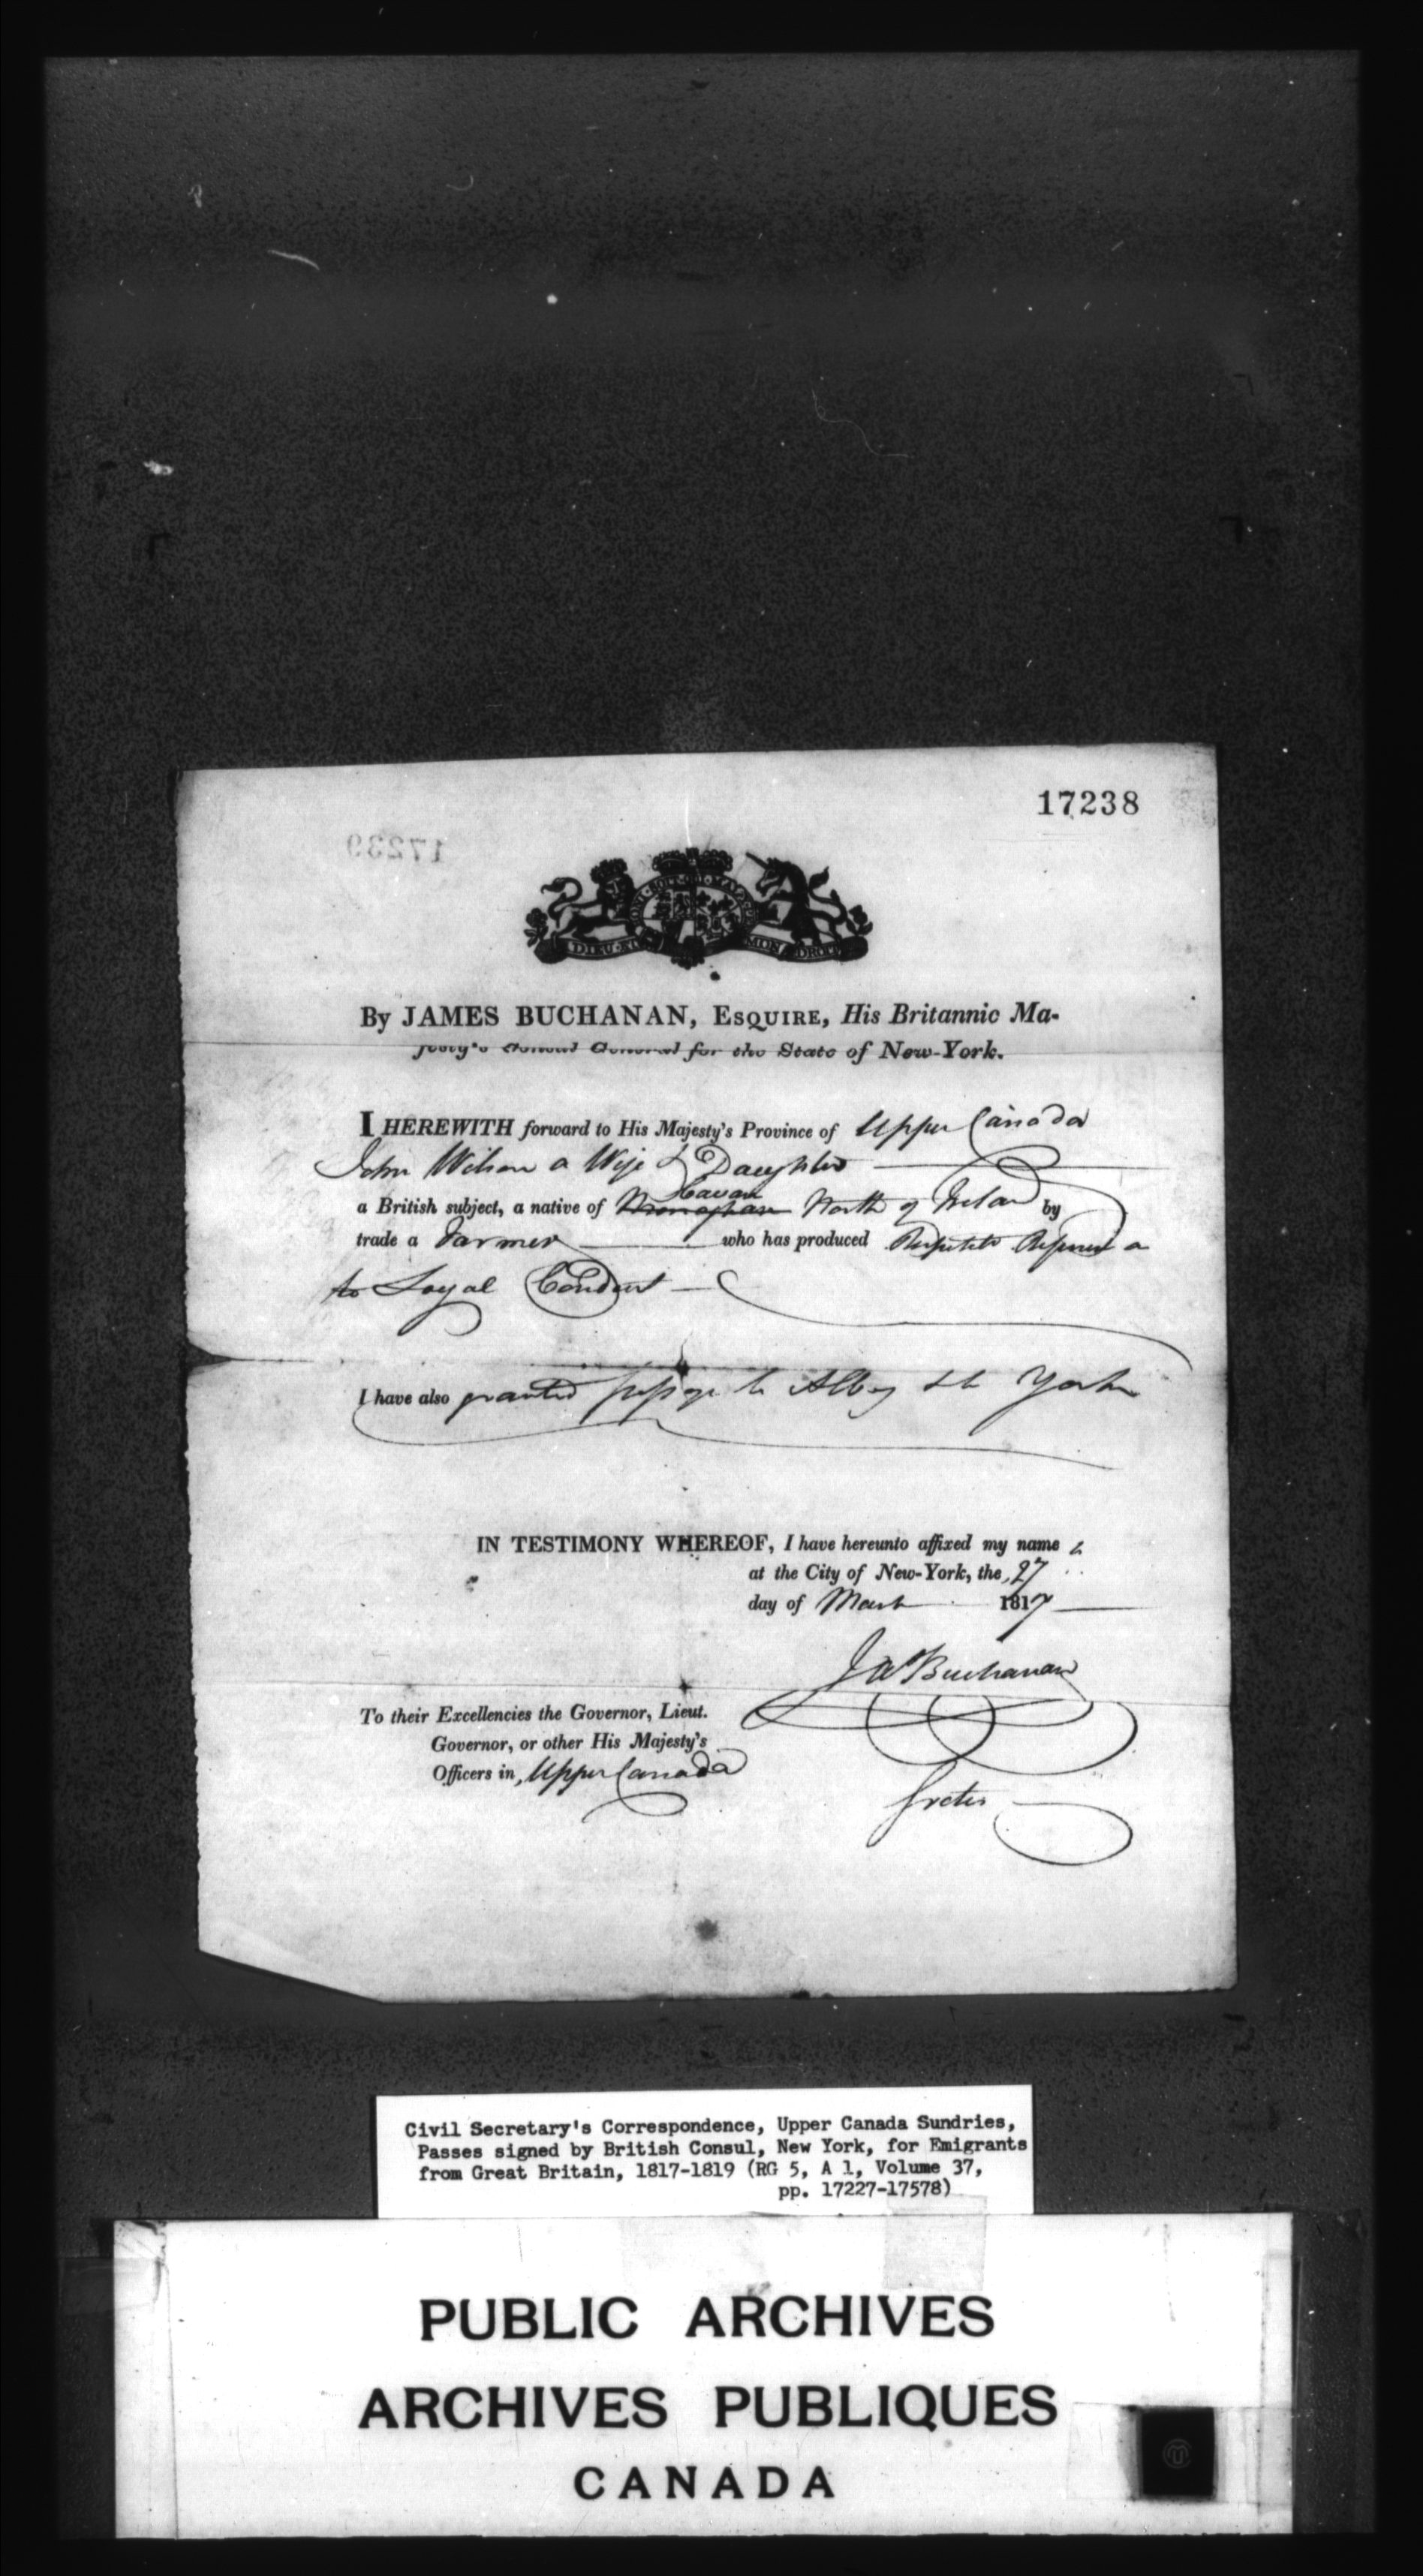 17238
17239
HONI SOIT QUI MAL Y
DIEU ET MON DROIT
By JAMES BUCHANAN, ESQUIRE, His Britannic Ma-
jesty's Consul General for the State of New-York.
I HEREWITH forward to His Majesty's Province of Upper Canada
John Wilson a Wife & Daughter
Cavan
a British subject, a native of Monaghan North of Ireland by
trade a Farmer who has produced
to Loyal Conduct
I have also granted passage to Albany & to York
IN TESTIMONY WHEREOF, I have hereunto affixed my name
at the City of New-York, the 27
day of March 1817
Jas Buchanan
To their Excellencies the Governor, Lieut.
Governor, or other His Majesty's
Officers in, Upper Canada
Gratis
Civil Secretary's Correspondence, Upper Canada Sundries,
Passes signed by British Consul, New York, for Emigrants
from Great Britain, 1817-1819 (RG 5, A 1, Volume 37,
pp. 17227-17578)
PUBLIC ARCHIVES
ARCHIVES PUBLIQUES
CANADA